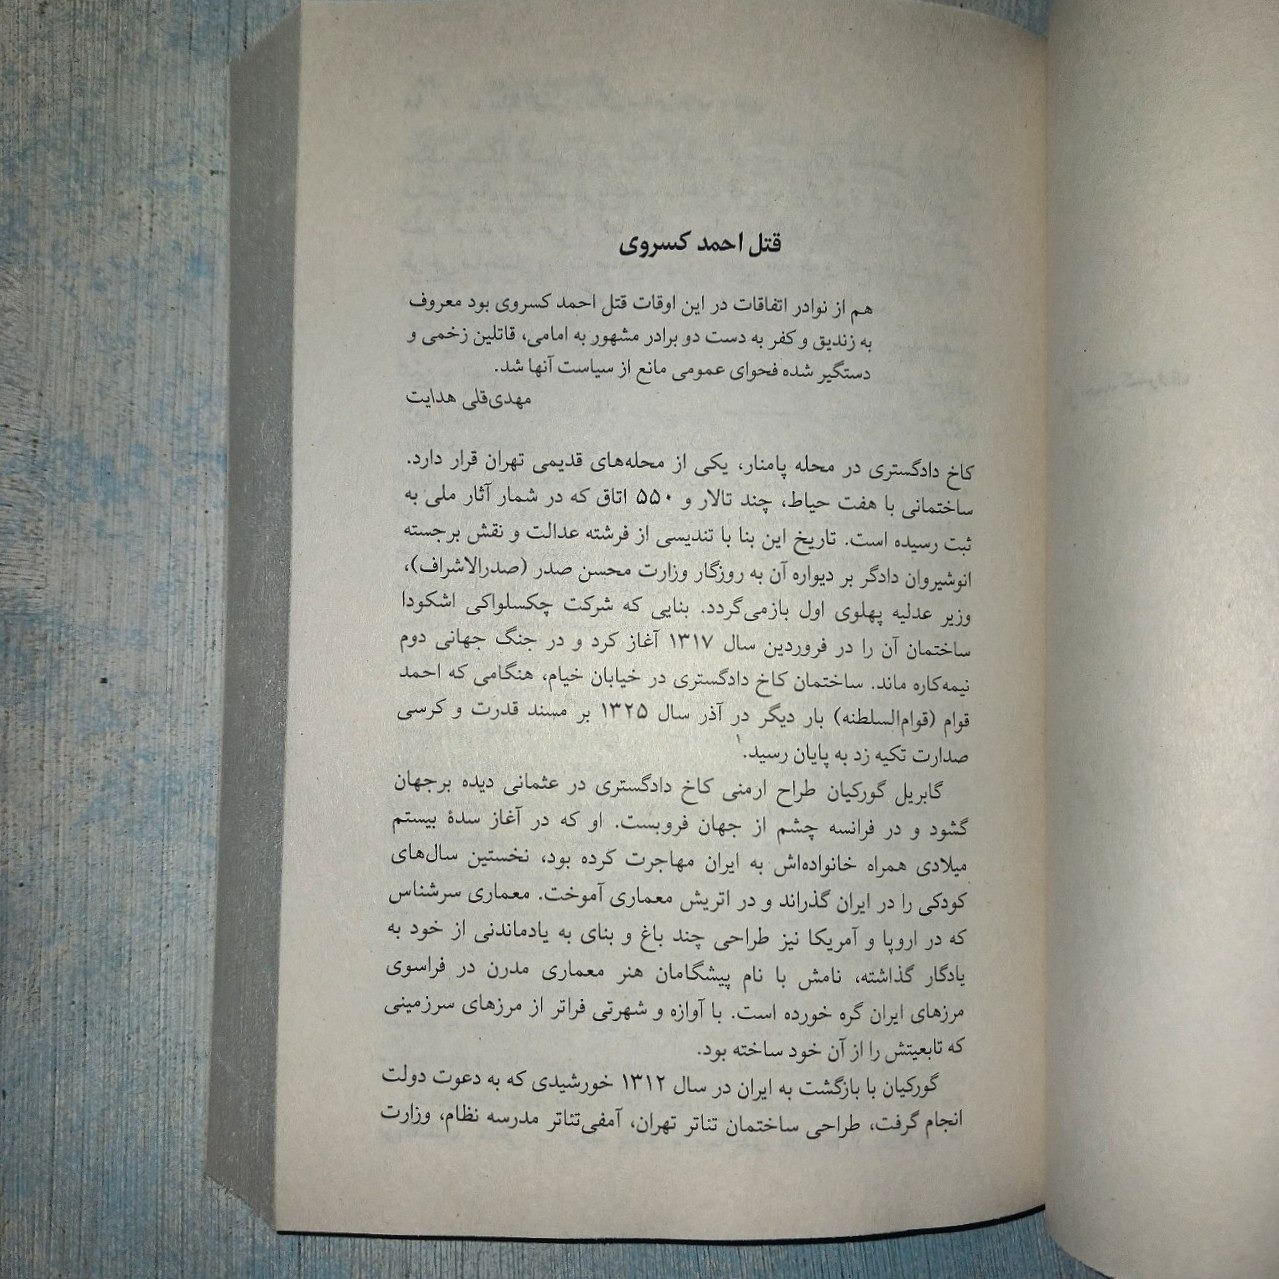 قتل احمد کسروی
هم از نوادر اتفاقات در این اوقات قتل احمد کسروی بود معروف
به زندیق و کفر به دست دو برادر مشهور به امامی، قاتلین زخمی و
دستگیر شده فحوای عمومی مانع از سیاست آنها شد.
مهدی‌قلی هدایت
کاخ دادگستری در محله پامنار، یکی از محله‌های قدیمی تهران قرار دارد.
ساختمانی با هفت حیاط، چند تالار و ۵۵۰ اتاق که در شمار آثار ملی به
ثبت رسیده است. تاریخ این بنا با تندیسی از فرشته عدالت و نقش برجسته
انوشیروان دادگر بر دیواره آن به روزگار وزارت محسن صدر (صدرالاشراف)،
وزیر عدلیه پهلوی اول بازمی‌گردد. بنایی که شرکت چکسلواکی اشکودا
ساختمان آن را در فروردین سال ۱۳۱۷ آغاز کرد و در جنگ جهانی دوم
نیمه‌کاره ماند. ساختمان کاخ دادگستری در خیابان خیام، هنگامی که احمد
قوام (قوام‌السلطنه) بار دیگر در آذر سال ۱۳۲۵ بر مسند قدرت و کرسی
صدارت تکیه زد به پایان رسید.۱
گابریل گورکیان طراح ارمنی کاخ دادگستری در عثمانی دیده برجهان
گشود و در فرانسه چشم از جهان فروبست. او که در آغاز سدهٔ بیستم
میلادی همراه خانواده‌اش به ایران مهاجرت کرده بود، نخستین سال‌های
کودکی را در ایران گذراند و در اتریش معماری آموخت. معماری سرشناس
که در اروپا و آمریکا نیز طراحی چند باغ و بنای به یادماندنی از خود به
یادگار گذاشته، نامش با نام پیشگامان هنر معماری مدرن در فراسوی
مرزهای ایران گره خورده است. با آوازه و شهرتی فراتر از مرزهای سرزمینی
که تابعیتش را از آن خود ساخته بود.
گورکیان با بازگشت به ایران در سال ۱۳۱۲ خورشیدی که به دعوت دولت
انجام گرفت، طراحی ساختمان تئاتر تهران، آمفی‌تئاتر مدرسه نظام، وزارت